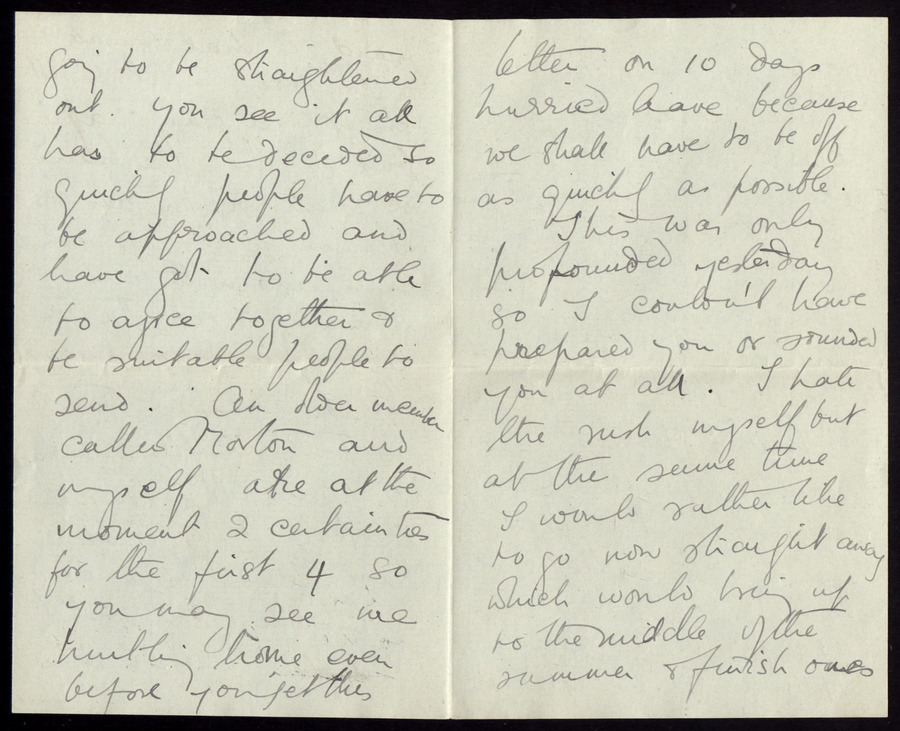 going to be straightened
out. You see it all
has to be decided so
quickly people have to
be approached and
have got to be able
to agree together &
be suitable people to
send. An older member
called Morton and
myself are at the
moment 2 certainties
for the first 4 so
you may see me
hurtling home even
before you get this
letter on 10 days
hurried leave because
we shall have to be off
as quickly as possible.
This was only
propounded yesterday
so I couldn't have
prepared you or sounded
you at all. I hate
the rush myself but
at the same time
I would rather like
to go now straight away
which would bring up
to the middle of the
summer & finish ones